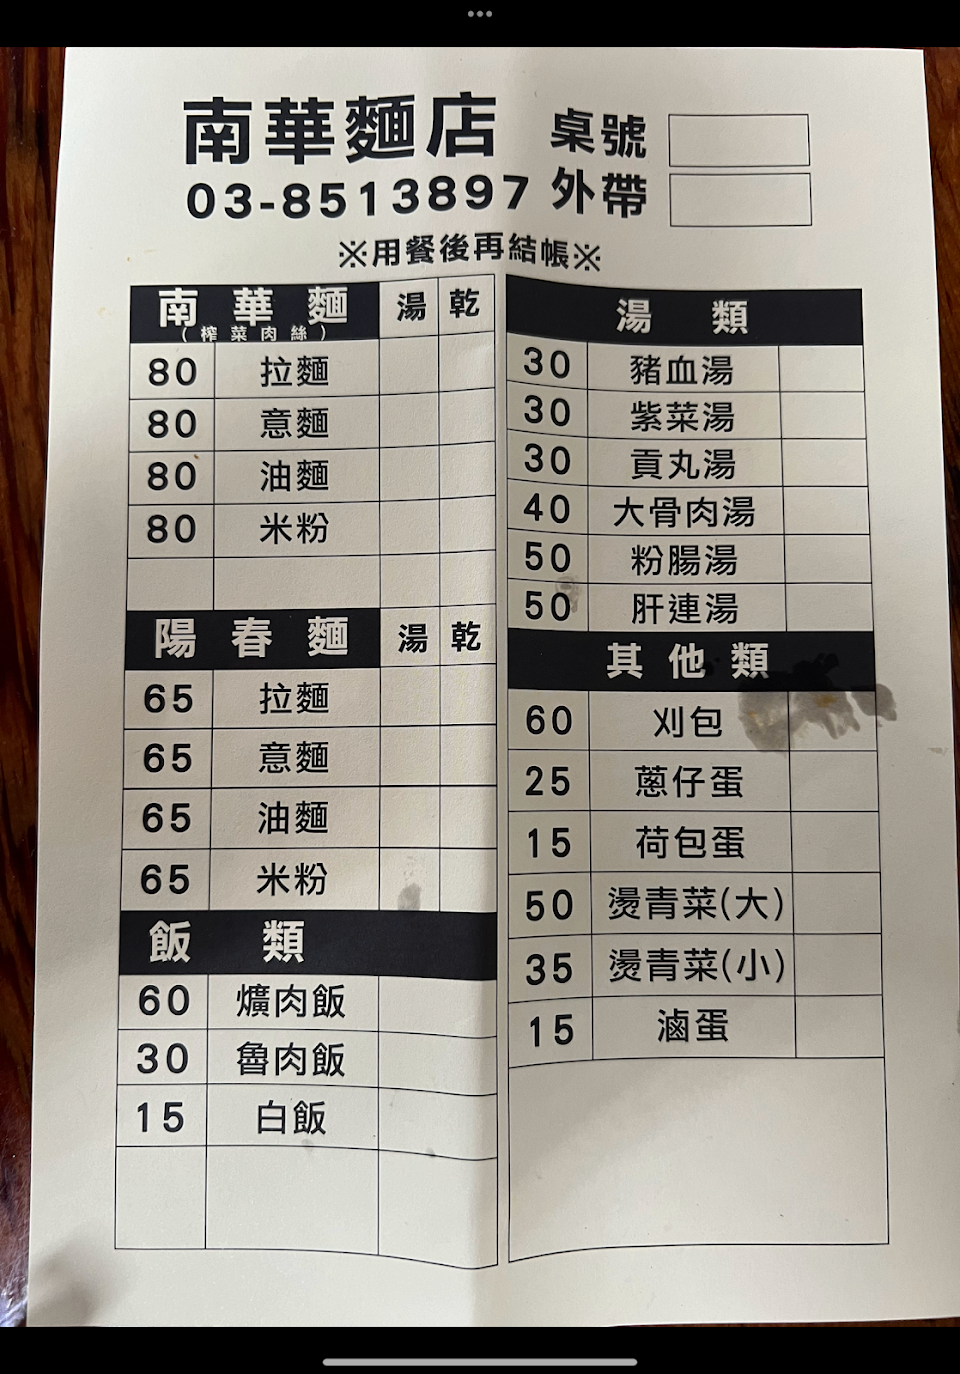 南華麵店
桌號
03-8513897
外帶
※用餐後再結帳※
南華麵 湯 乾
(榨菜肉絲)
80 拉麵
80 意麵
80 油麵
80 米粉
陽春麵 湯 乾
65 拉麵
65 意麵
65 油麵
65 米粉
飯類
60 爌肉飯
30 魯肉飯
15 白飯
湯類
30 豬血湯
30 紫菜湯
30 貢丸湯
40 大骨肉湯
50 粉腸湯
50 肝連湯
其他類
60 刈包
25 蔥仔蛋
15 荷包蛋
50 燙青菜(大)
35 燙青菜(小)
15 滷蛋